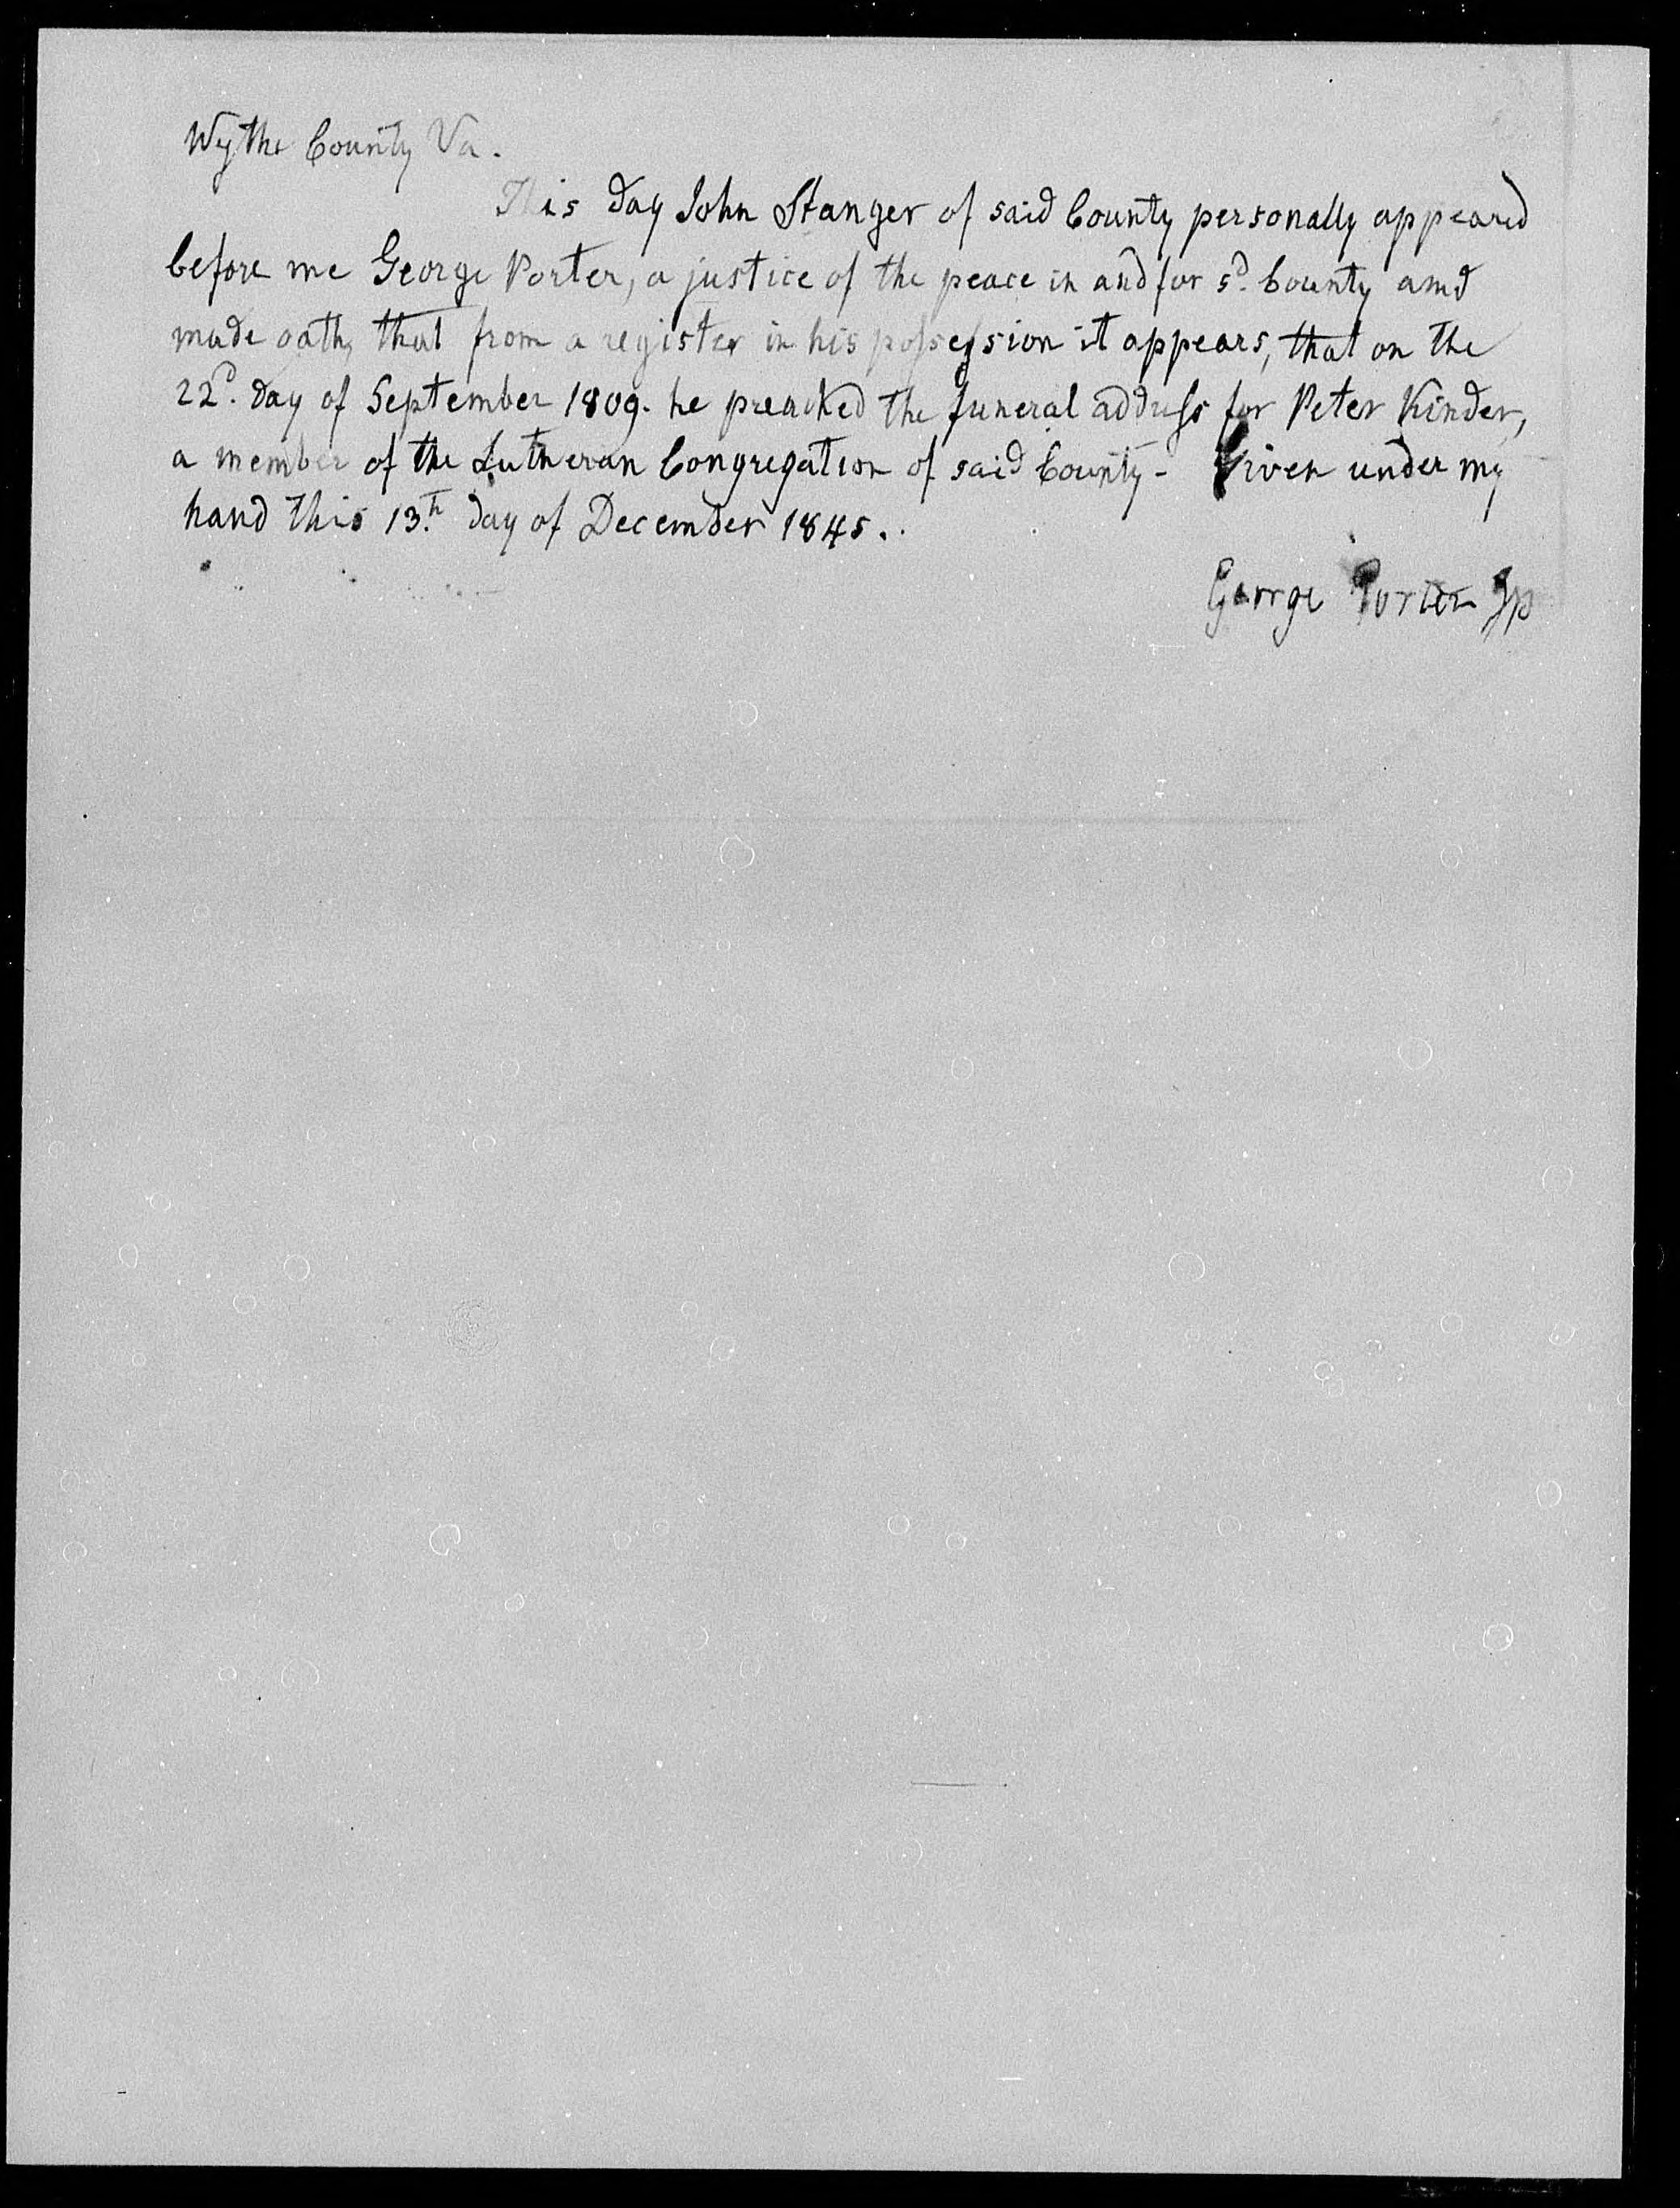 Wythe County Va.
This day John Stanger of said County personally appeared
before me George Porter, a justice of the peace in and for sd. County and
made oath, that from a register in his possession it appears, that on the
22d. day of September 1809. he preached the funeral address for Peter Kinder,
a member of the Lutheran Congregation of said County - Given under my
hand this 13th day of December 1845.
George Porter Jp